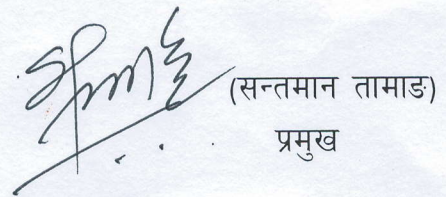 (सन्तमान तामाङ)
प्रमुख